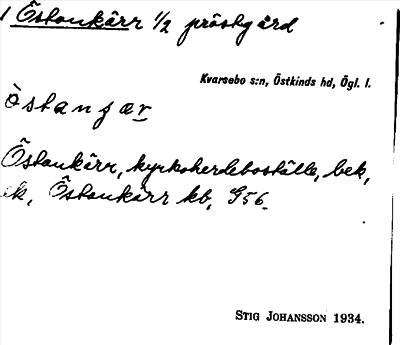 1 Östankärr 1/2 prästgård
Kvarsebo s:n, Östkinds hd, Ögl. l.
östanɟær
Östankärr, kyrkoherdeboställe, bek,
ek, Östankärr kb, G56.
STIG JOHANSSON 1934.